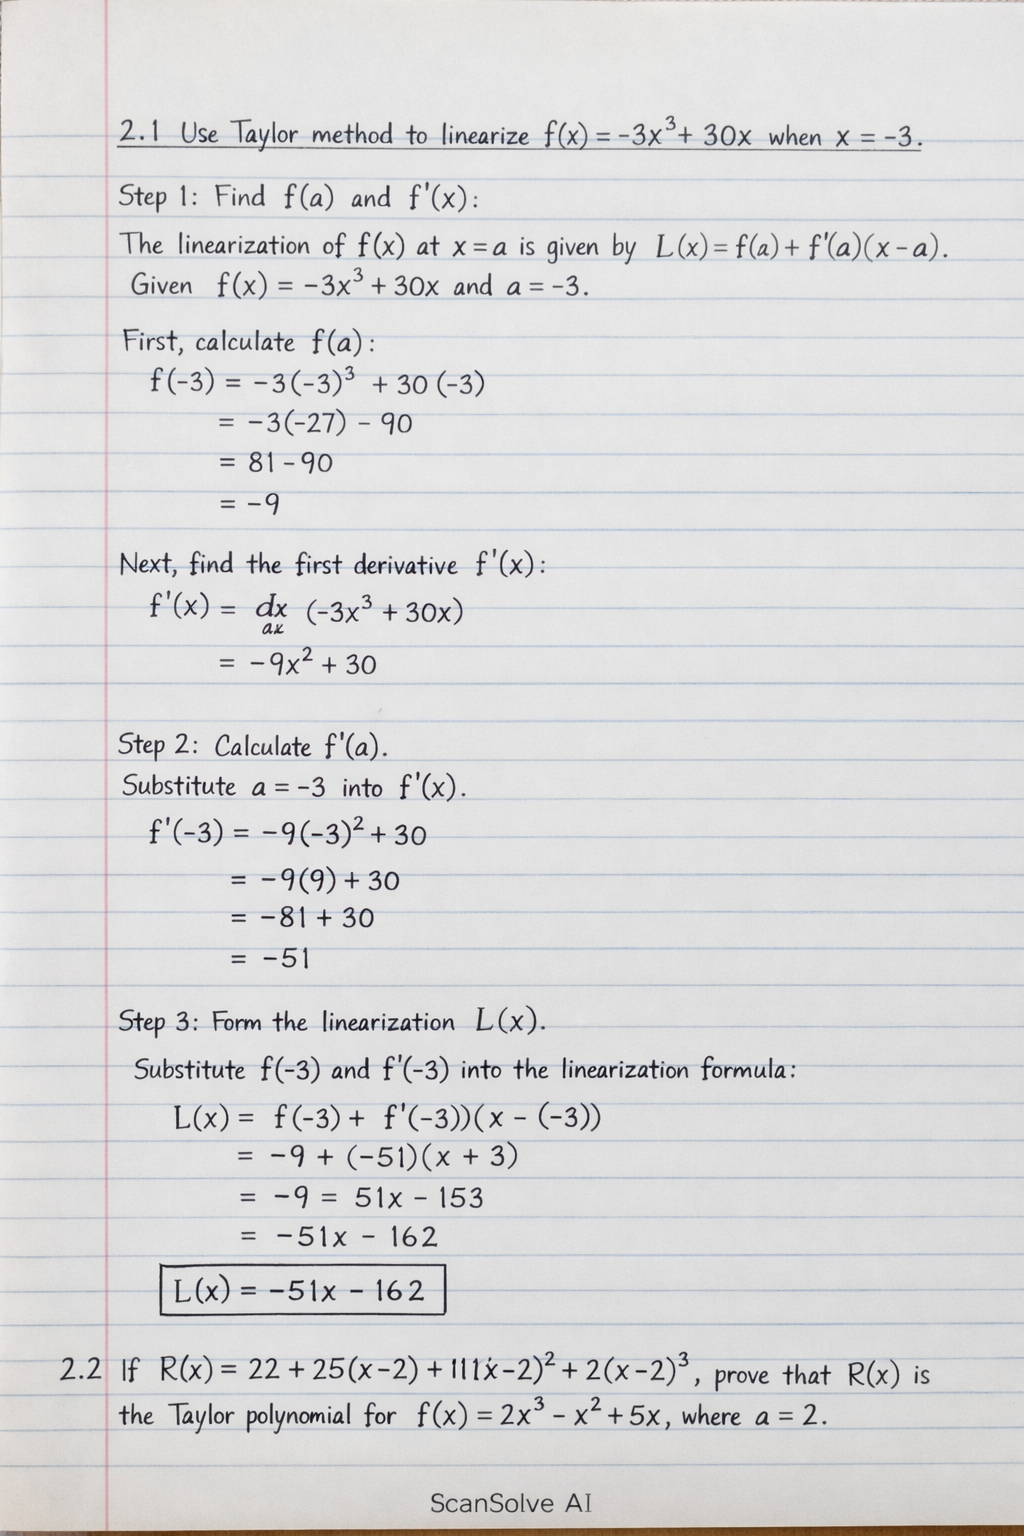 2.1 Use Taylor method to linearize f(x) = -3x³ + 30x when x = -3.
Step 1: Find f(a) and f'(x):
The linearization of f(x) at x = a is given by L(x) = f(a) + f'(a)(x - a).
Given f(x) = -3x³ + 30x and a = -3.
First, calculate f(a):
f(-3) = -3(-3)³ + 30 (-3)
= -3(-27) - 90
= 81 - 90
= -9
Next, find the first derivative f'(x):
f'(x) = dx (-3x³ + 30x)
= -9x² + 30
Step 2: Calculate f'(a).
Substitute a = -3 into f'(x).
f'(-3) = -9(-3)² + 30
= -9(9) + 30
= -81 + 30
= -51
Step 3: Form the linearization L(x).
Substitute f(-3) and f'(-3) into the linearization formula:
L(x) = f(-3) + f'(-3))(x - (-3))
= -9 + (-51)(x + 3)
= -9 = 51x - 153
= -51x - 162
L(x) = -51x - 162
2.2 If R(x) = 22 + 25(x-2) + 111x-2)² + 2(x-2)³, prove that R(x) is
the Taylor polynomial for f(x) = 2x³ - x² + 5x, where a = 2.
ScanSolve AI